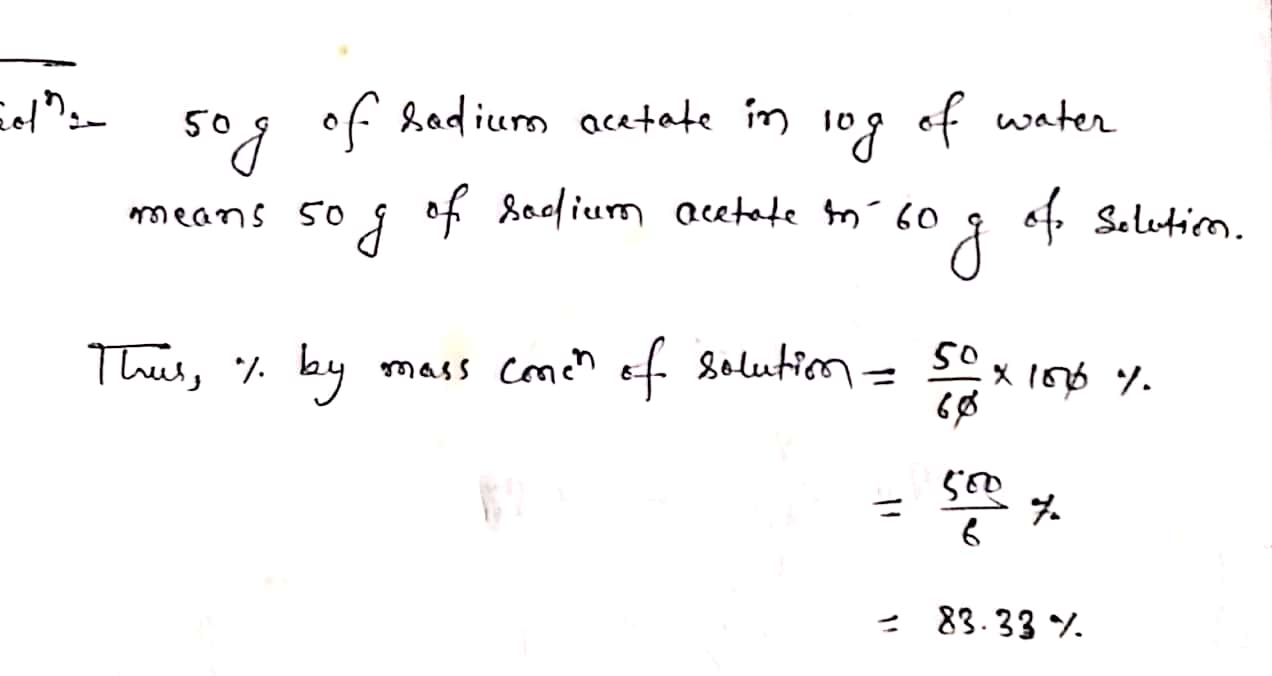 solⁿ:- 50g of sodium acetate in 10g of water
means 50 g of sodium acetate in 60 g of solution.
Thus, % by mass concⁿ of solution = 50/60 x 100 %.
= 500/6 %
= 83.33 %.